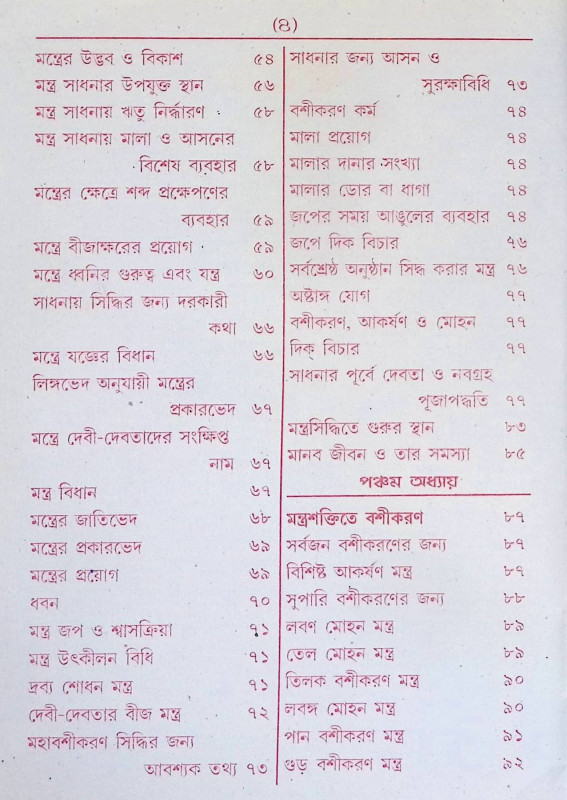 (৪)
মন্ত্রের উদ্ভব ও বিকাশ ৫৪
মন্ত্র সাধনার উপযুক্ত স্থান ৫৬
মন্ত্র সাধনায় ঋতু নির্দ্ধারণ ৫৮
মন্ত্র সাধনায় মালা ও আসনের
বিশেষ ব্যবহার ৫৮
মন্ত্রের ক্ষেত্রে শব্দ প্রক্ষেপণের
ব্যবহার ৫৯
মন্ত্রে বীজাক্ষরের প্রয়োগ ৫৯
মন্ত্রে ধ্বনির গুরুত্ব এবং যন্ত্র ৬০
সাধনায় সিদ্ধির জন্য দরকারী
কথা ৬৬
মন্ত্রে যজ্ঞের বিধান ৬৬
লিঙ্গভেদ অনুযায়ী মন্ত্রের
প্রকারভেদ ৬৭
মন্ত্রে দেবী-দেবতাদের সংক্ষিপ্ত
নাম ৬৭
মন্ত্র বিধান ৬৭
মন্ত্রের জাতিভেদ ৬৮
মন্ত্রের প্রকারভেদ ৬৯
মন্ত্রের প্রয়োগ ৬৯
ধবন ৭০
মন্ত্র জপ ও শ্বাসক্রিয়া ৭১
মন্ত্র উৎকীলন বিধি ৭১
দ্রব্য শোধন মন্ত্র ৭১
দেবী-দেবতার বীজ মন্ত্র ৭২
মহাবশীকরণ সিদ্ধির জন্য
আবশ্যক তথ্য ৭৩
সাধনার জন্য আসন ও
সুরক্ষাবিধি ৭৩
বশীকরণ কর্ম ৭৪
মালা প্রয়োগ ৭৪
মালার দানার সংখ্যা ৭৪
মালার ডোর বা ধাগা ৭৪
জপের সময় আঙুলের ব্যবহার ৭৪
জপে দিক বিচার ৭৬
সর্বশ্রেষ্ঠ অনুষ্ঠান সিদ্ধ করার মন্ত্র ৭৬
অষ্টাঙ্গ যোগ ৭৭
বশীকরণ, আকর্ষণ ও মোহন ৭৭
দিক্ বিচার ৭৭
সাধনার পূর্বে দেবতা ও নবগ্রহ
পূজাপদ্ধতি ৭৭
মন্ত্রসিদ্ধিতে গুরুর স্থান ৮৩
মানব জীবন ও তার সমস্যা ৮৫
পঞ্চম অধ্যায়
মন্ত্রশক্তিতে বশীকরণ ৮৭
সর্বজন বশীকরণের জন্য ৮৭
বিশিষ্ট আকর্ষণ মন্ত্র ৮৭
সুপারি বশীকরণের জন্য ৮৮
লবণ মোহন মন্ত্র ৮৯
তেল মোহন মন্ত্র ৮৯
তিলক বশীকরণ মন্ত্র ৯০
লবঙ্গ মোহন মন্ত্র ৯০
পান বশীকরণ মন্ত্র ৯১
গুড় বশীকরণ মন্ত্র ৯২